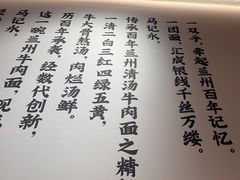 一双手，牵起兰州百年记忆。
一团面，汇成银线千丝万缕。
马记永，
传承百年兰州清汤牛肉面之精
一清二白三红四绿五黄，
牛大骨熬汤，肉烂汤鲜。
历百年承袭，经数代创新，
这一碗兰州牛肉面，现
马记永，